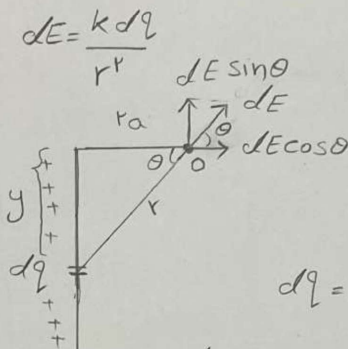 dE = k dq / r^r
dE sinθ
dE
r_a
θ
dE cosθ
θ
O
y
+
+
+
+
r
dq
dq =
+
+
+